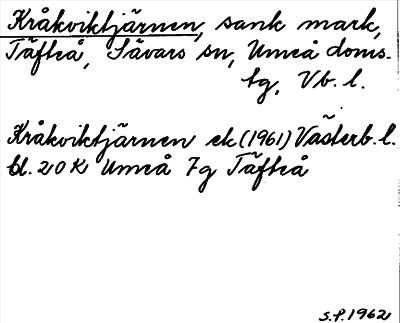 Kråkviktjärnen, sank mark,
Täfteå, Sävars sn, Umeå doms.
tg, Vb. l.
Kråkviktjärnen ek (1961) Västerb. l.
bl. 20 K Umeå 7g Täfteå
S.P. 1962